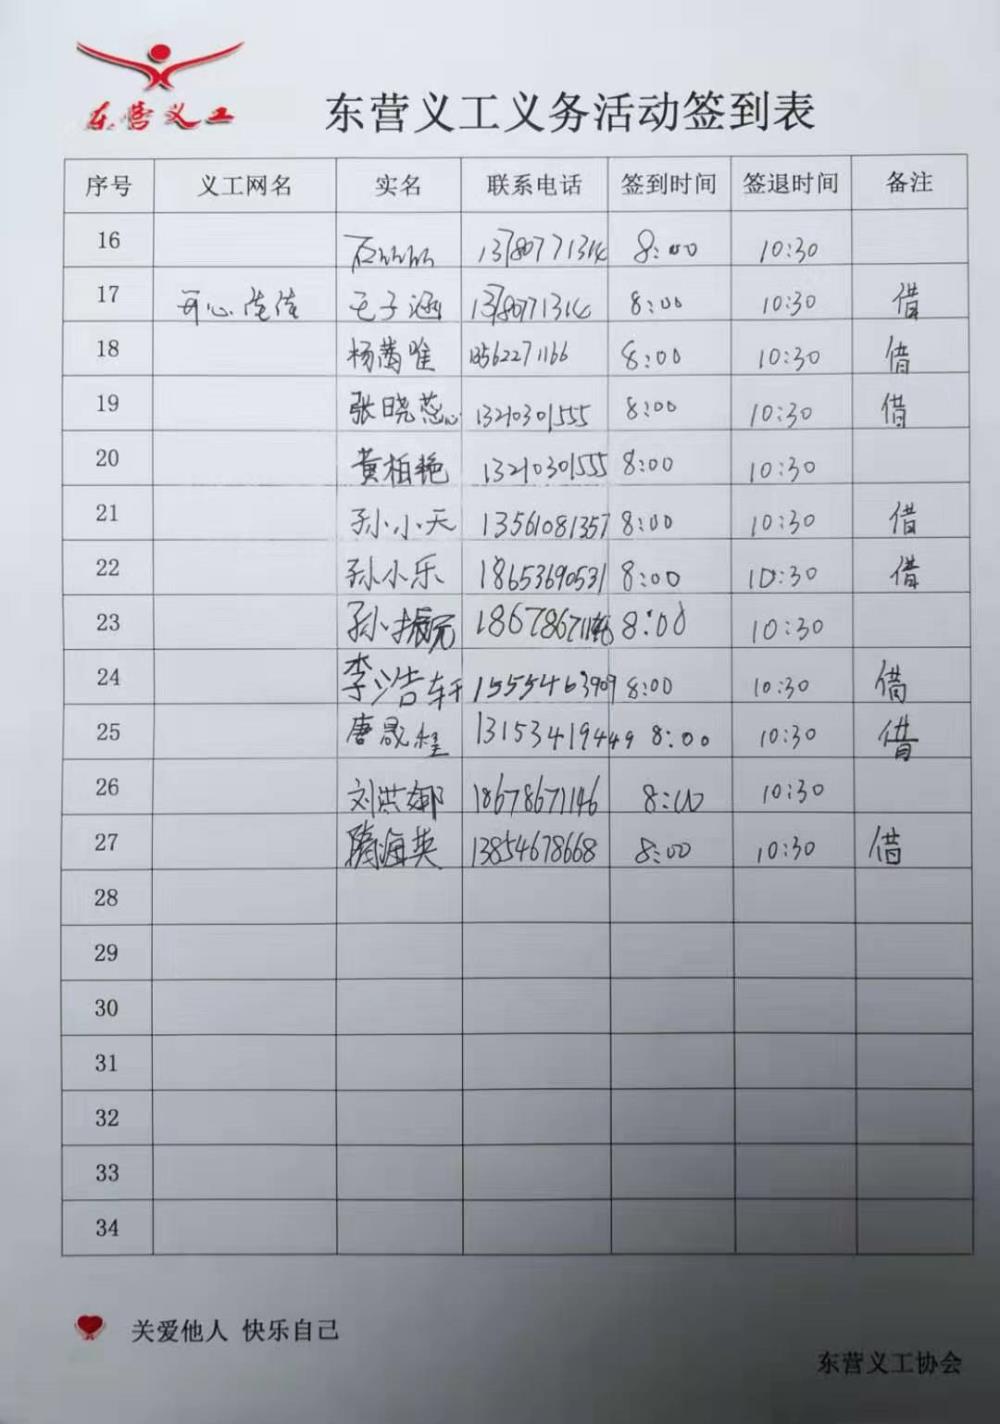 东营义工
东营义工义务活动签到表
序号 义工网名 实名 联系电话 签到时间 签退时间 备注
16 13780771314 8:00 10:30
17 开心佳佳 王子涵 13780771314 8:00 10:30 借
18 杨茜唯 13562271166 8:00 10:30 借
19 张晓蕊 13210301555 8:00 10:30 借
20 黄柏艳 13210301555 8:00 10:30
21 孙小天 13561081357 8:00 10:30 借
22 孙小乐 18653690531 8:00 10:30 借
23 孙振元 18678671146 8:00 10:30
24 李浩轩 15554663909 8:00 10:30 借
25 唐晟桂 13153419449 8:00 10:30 借
26 刘洪娜 18678671146 8:00 10:30
27 隋海英 13854678668 8:00 10:30 借
28
29
30
31
32
33
34
关爱他人 快乐自己
东营义工协会